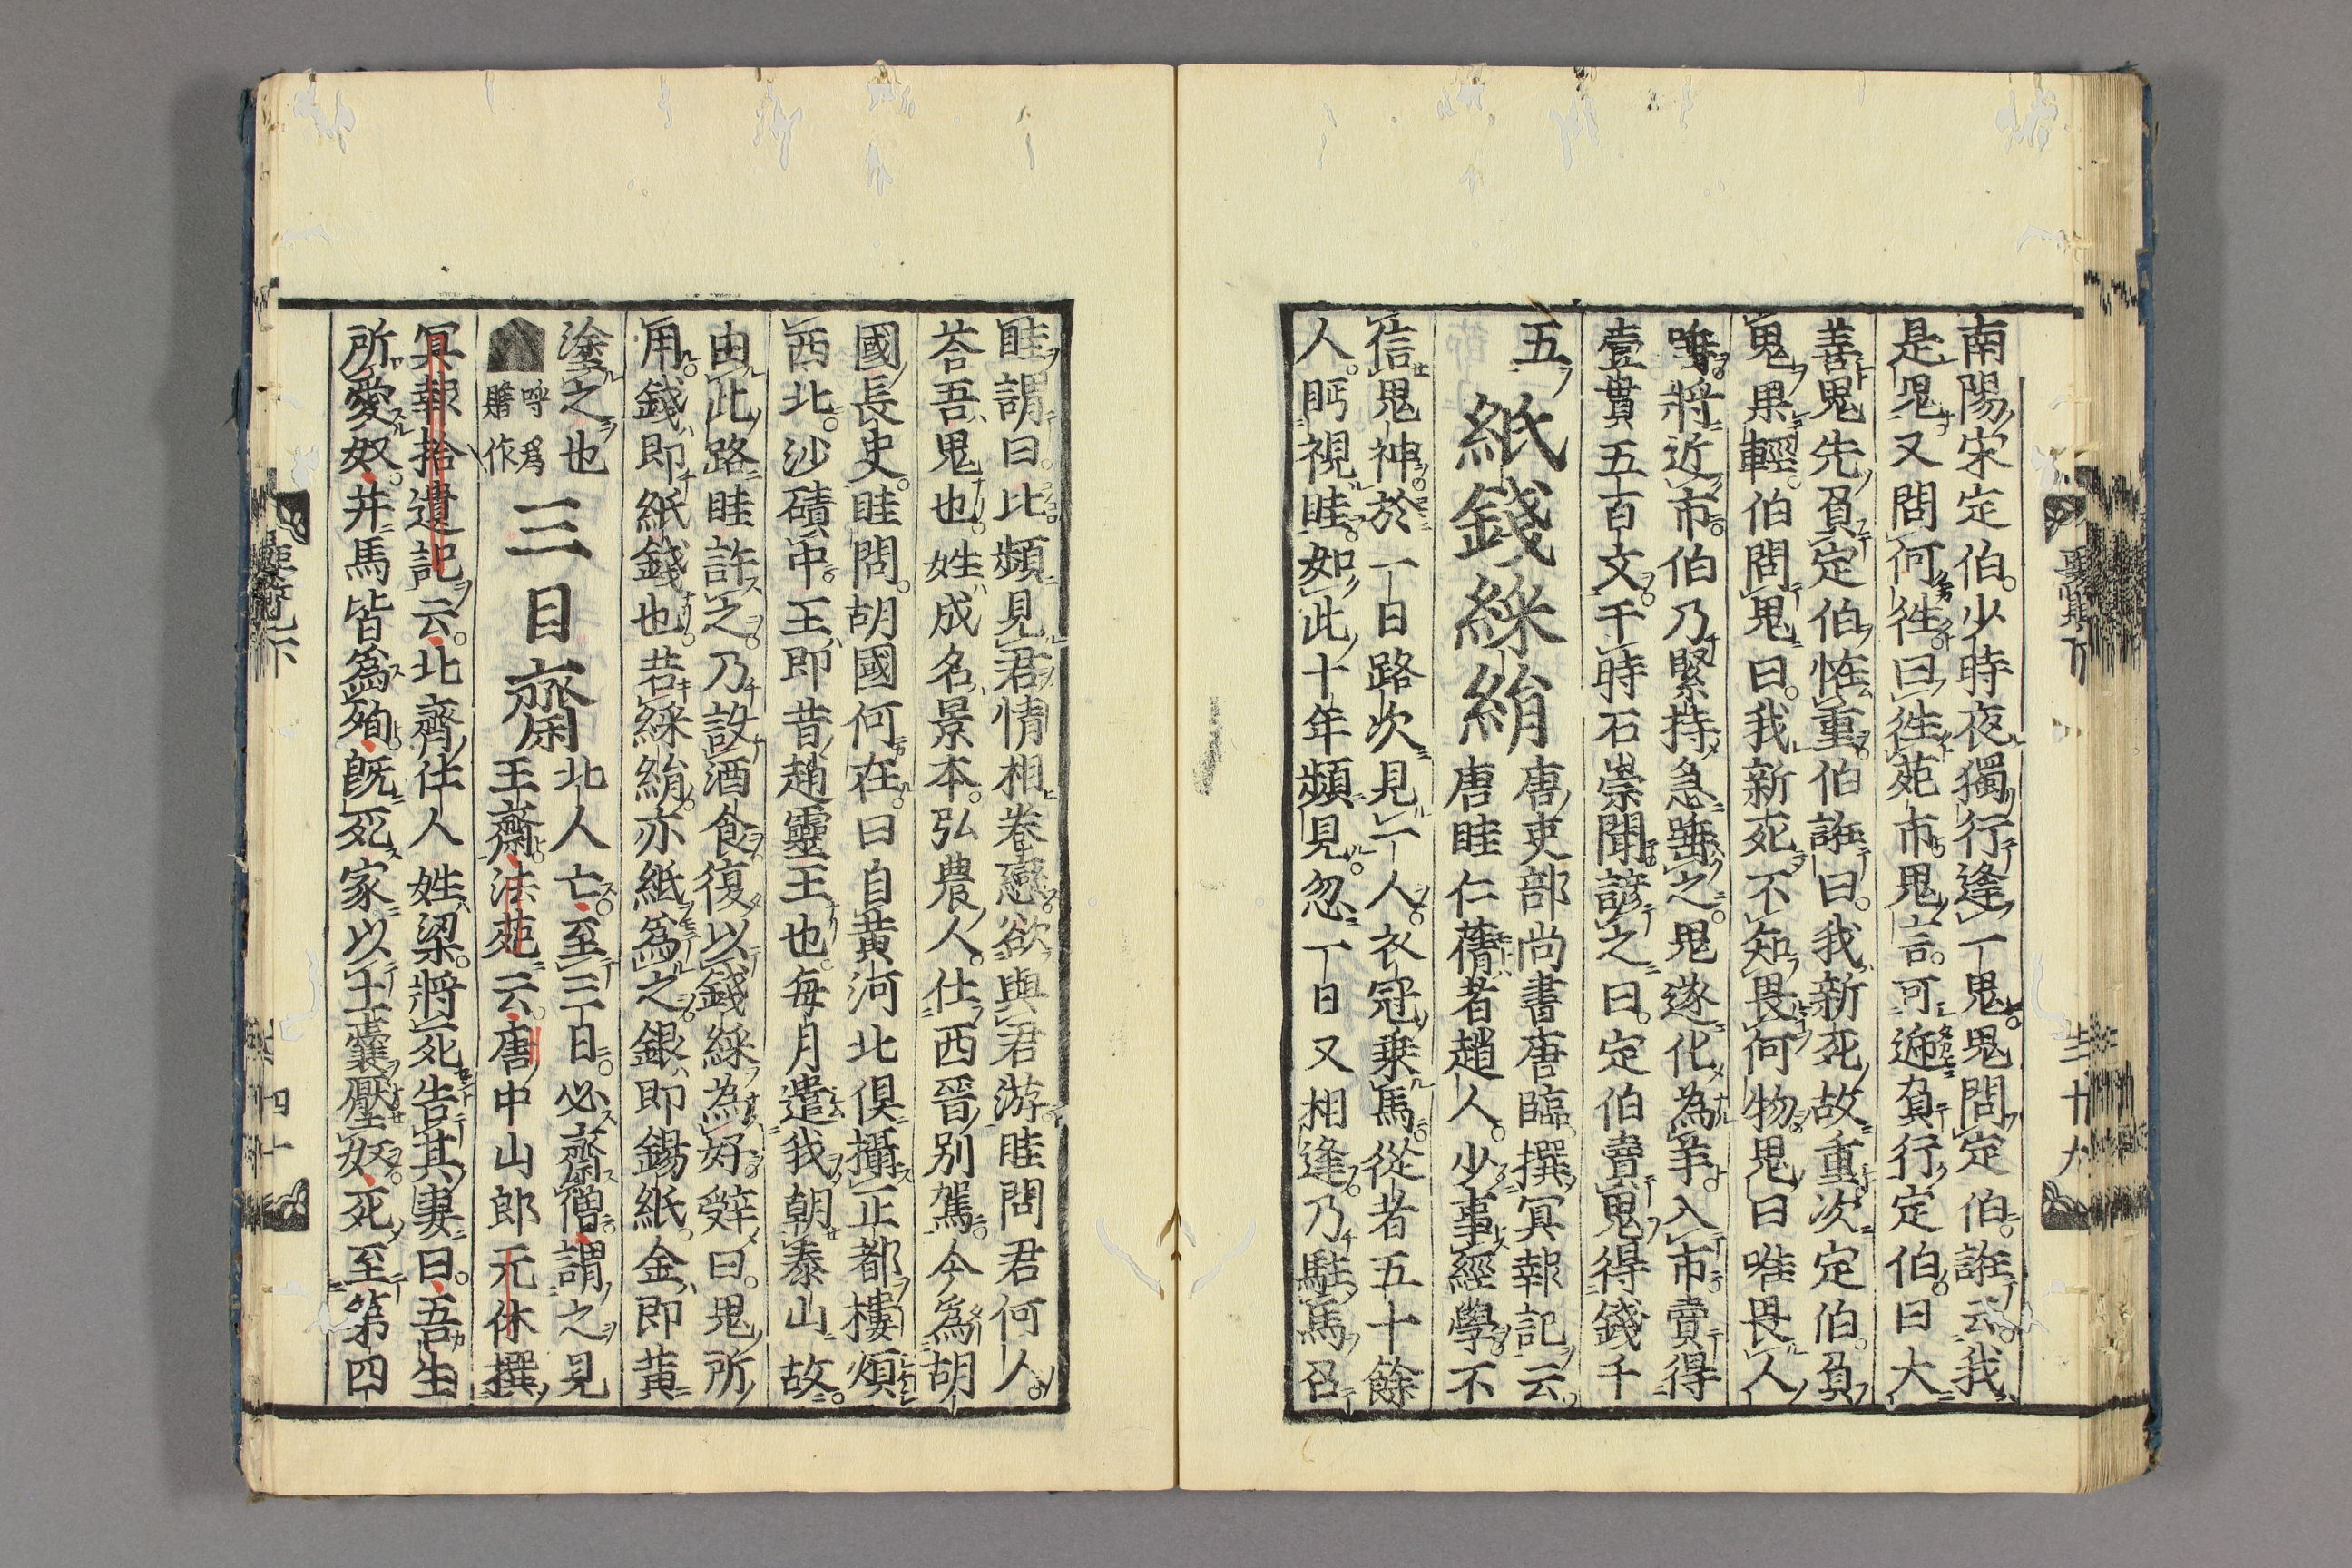 南陽宋定伯少時夜獨行逢一鬼鬼問定伯誑云我
是鬼又問何徃曰徃苑市鬼言可逓負行定伯曰大
善鬼先負定伯恠重伯誑曰我新死故重次定伯負
鬼果輕伯問鬼曰我新死不知畏何物鬼曰唯畏人
唾將近市伯乃緊持急唾之鬼遂化為羊入市賣得
壹貫五百文千時石崇聞諺之曰定伯賣鬼得錢千
五
紙錢綵絹 唐吏部尚書唐臨撰冥報記云
唐眭仁蒨者趙人少事經學不
信鬼神於一日路次見一人衣冠乗馬從者五十餘
人眄視眭如此十年頻見忽一日又相逢乃駐馬召
眭謂曰比頻見君情相眷戀欲與君游眭問君何人
荅吾鬼也姓成名景本弘農人仕西晉別駕今為胡
國長史眭問胡國何在曰自黄河北倶攝正都樓煩
西北沙磧中王即昔趙靈王也毎月遣我朝泰山故
由此路眭許之乃設酒食復以錢綵為好辤曰鬼所
用錢即紙錢也若綵絹亦紙為之銀即錫紙金即黄
塗之也
呼為
賭作
三目齋 北人亡至三日必齋僧謂之見
王齋法苑云唐中山郎元休撰
冥報拾遺記云北齊仕人姓梁將死告其妻曰吾生
所愛奴并馬皆為殉既死家以土囊壓奴死至第四